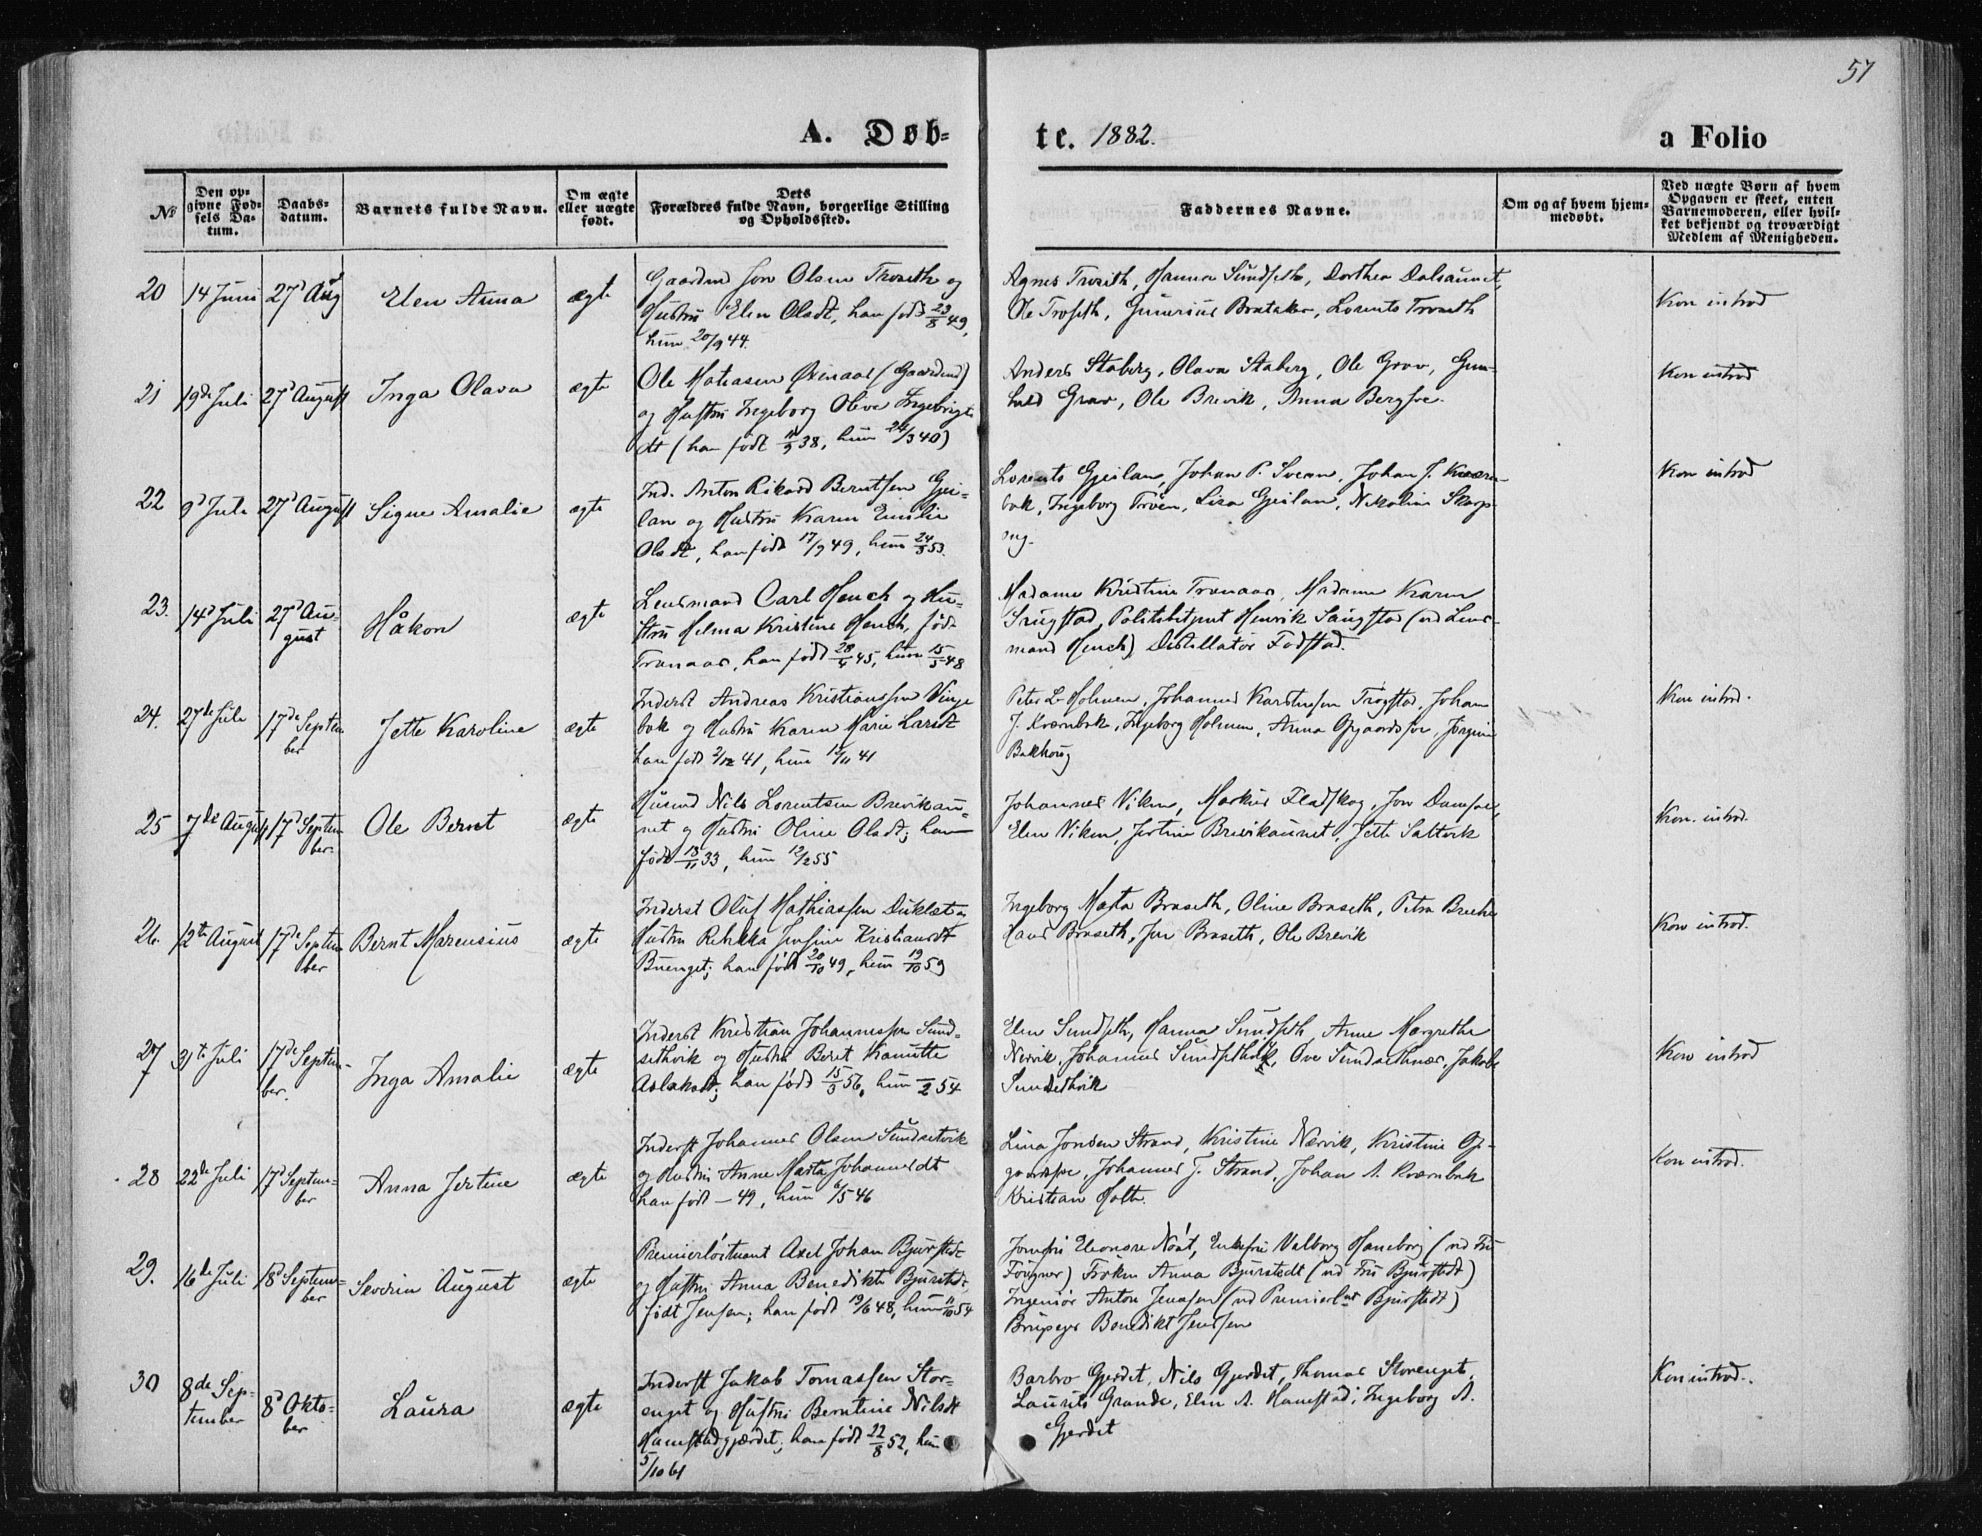 57
A. Døb-
te. 1882.
a Folio
№
Den op-
givne Fød-
sels Da-
tum.
Daabs-
datum.
Barnets fulde Navn.
Om ægte
eller uægte
født.
Dets
Forældres fulde Navn, borgerlige Stilling
og Opholdssted.
Faddernes Navne.
Om og af hvem hjem-
medøbt.
Ved uægte Børn af hvem
Opgaven er skeet, enten
Barnemoderen, eller hvil-
ket bekjendt og troværdigt
Medlem af Menigheden.
20
14 Juni
27d Aug
Elen Anna
ægte
Gaardmd Jon Olsen Troseth og
Hustru Elen Olsdt, han født 23/8 49,
hun 20/9 44.
Agnes Troseth, Hanna Sundseth, Dorthea Dalsaunet,
Ole Troseth, Gunerius Brataker, Lorents Troseth
Kon introd
21
19de Juli
27d August
Inga Olava
ægte
Ole Matiasen Øxnaas (Gaardmd)
og Hustru Ingeborg Olava Ingebrigts
dt (han født 11/9 38, hun 24/3 40)
Anders Staberg, Olava Staberg, Ole Grav, Gun-
hild Grav, Ole Brevik, Anna Bergsve.
Kon introd
22
9d Juli
27d August
Signe Amalie
ægte
Ind. Anton Rikard Berntsen Gjei-
lan og Hustru Karen Emilie
Olsdt, han født 17/9 49, hun 24/8 53.
Lorents Gjeilan, Johan P. Sveen, Johan J. Kværn-
bak, Ingeborg Trøen, Lisa Gjeilan, Nikoline Skarp-
eng.
Kon introd
23.
14d Juli
27d Au-
gust
Håkon
ægte
Lensmand Carl Hench og Hu-
stru Helma Kristine Hench, født
Tranaas, han født 28/4 45, hun 15/5 48
Madame Kristine Tranaas, Madame Karen
Saugstad, Politibetjent Henrik Saugstad (ved Lens-
mand Hench) Distillatør Fodstad.
24.
27de Juli
17de Septem
ber
Jette Karoline
ægte
Inderst Andreas Kristiansen Vinge
bak og Hustru Karen Marie Larsdt
han født 2/12 41, hun 12/11 41
Peter L. Holmen, Johannes Karstensen Trøgstad, Johan
J. Kværnbak, Ingeborg Holmen, Anna Opgaardsve, Jørgine
Bakhaug
Kon introd.
25
7de August
17d Septem
ber.
Ole Bernt
ægte
Husmd Nils Lorentsen Brevikau-
net og Hustru Oline Olsdt; han
født 13/11 33, hun 12/2 55
Johannes Viken, Markus Fladskog, Jon Damsve,
Elen Viken, Jertine Brevikaunet, Jette Saltvik
Kon. introd.
26.
12te August
17de Septem
ber
Bernt Marensius
ægte
Inderst Oluf Mathiassen Duklæt og
Hustru Rebekka Josefine Kristiansdt
Buenget; han født 20/10 49, hun 19/10 59
Ingeborg Marta Braseth, Oline Braseth, Petra Brecke
Hans Braseth, Jon Braseth, Ole Brevik
Kon introd.
27
31te Juli
17de Septem-
ber.
Inga Amalie
ægte
Inderst Kristian Johannessen Sund-
sethvik og Hustru Beret Kanutte
Aslaksdt; han født 15/3 56, hun —/2 54
Elen Sundseth, Hanna Sundseth, Anne Margrethe
Nervik, Johannes Sundsethvik, Ove Sundsethnæs, Jakob
Sundsethvik
Kon introd
28
22de Juli
17d Septem-
ber
Anna Jertine
ægte
Inderst Johannes Olsen Sundsetvik
og Hustru Anne Marta Johannesdt
han født — 49, hun 6/5 46
Lina Jonsen Strand, Kristine Nervik, Kristine Op-
gaardsve, Johannes J. Strand, Johan A. Kværnbak
Kristian Holte.
Kon introd.
29.
16de Juli
18d Septem-
ber
Severin August
ægte
Premierløitnant Axel Johan Bjurstedt
og Hustru Anna Benedikte Bjurstedt,
født Jensen; han født 19/6 48, hun 11/10 54
Jomfru Eleonore Noót, Enkefru Valborg Haneborg (ved Fru
Fougner) Frøken Anna Bjurstedt (ved Fru Bjurstedt)
Ingeniør Anton Jenssen (ved Premierlnt Bjurstedt)
Benedikt Jenssen
30
8de Sep-
tember
8d Okto-
ber
Laura
ægte
Inderst Jakob Tomassen Stor-
enget og Hustru Berntine Nilsdt
Hamstadgjærdet; han født 22/8 52, hun
5/10 61
Barbro Gjerdet, Nils Gjerdet, Thomas Storenget,
Laurits Grande, Elen A. Hamstad, Ingeborg A.
Gjerdet
Kon introd.